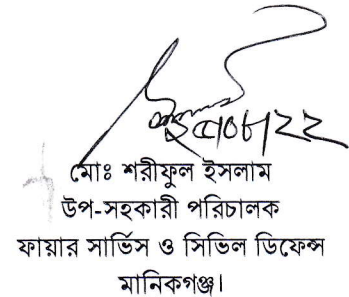 মোঃ শরীফুল ইসলাম
উপ-সহকারী পরিচালক
ফায়ার সার্ভিস ও সিভিল ডিফেন্স
মানিকগঞ্জ।